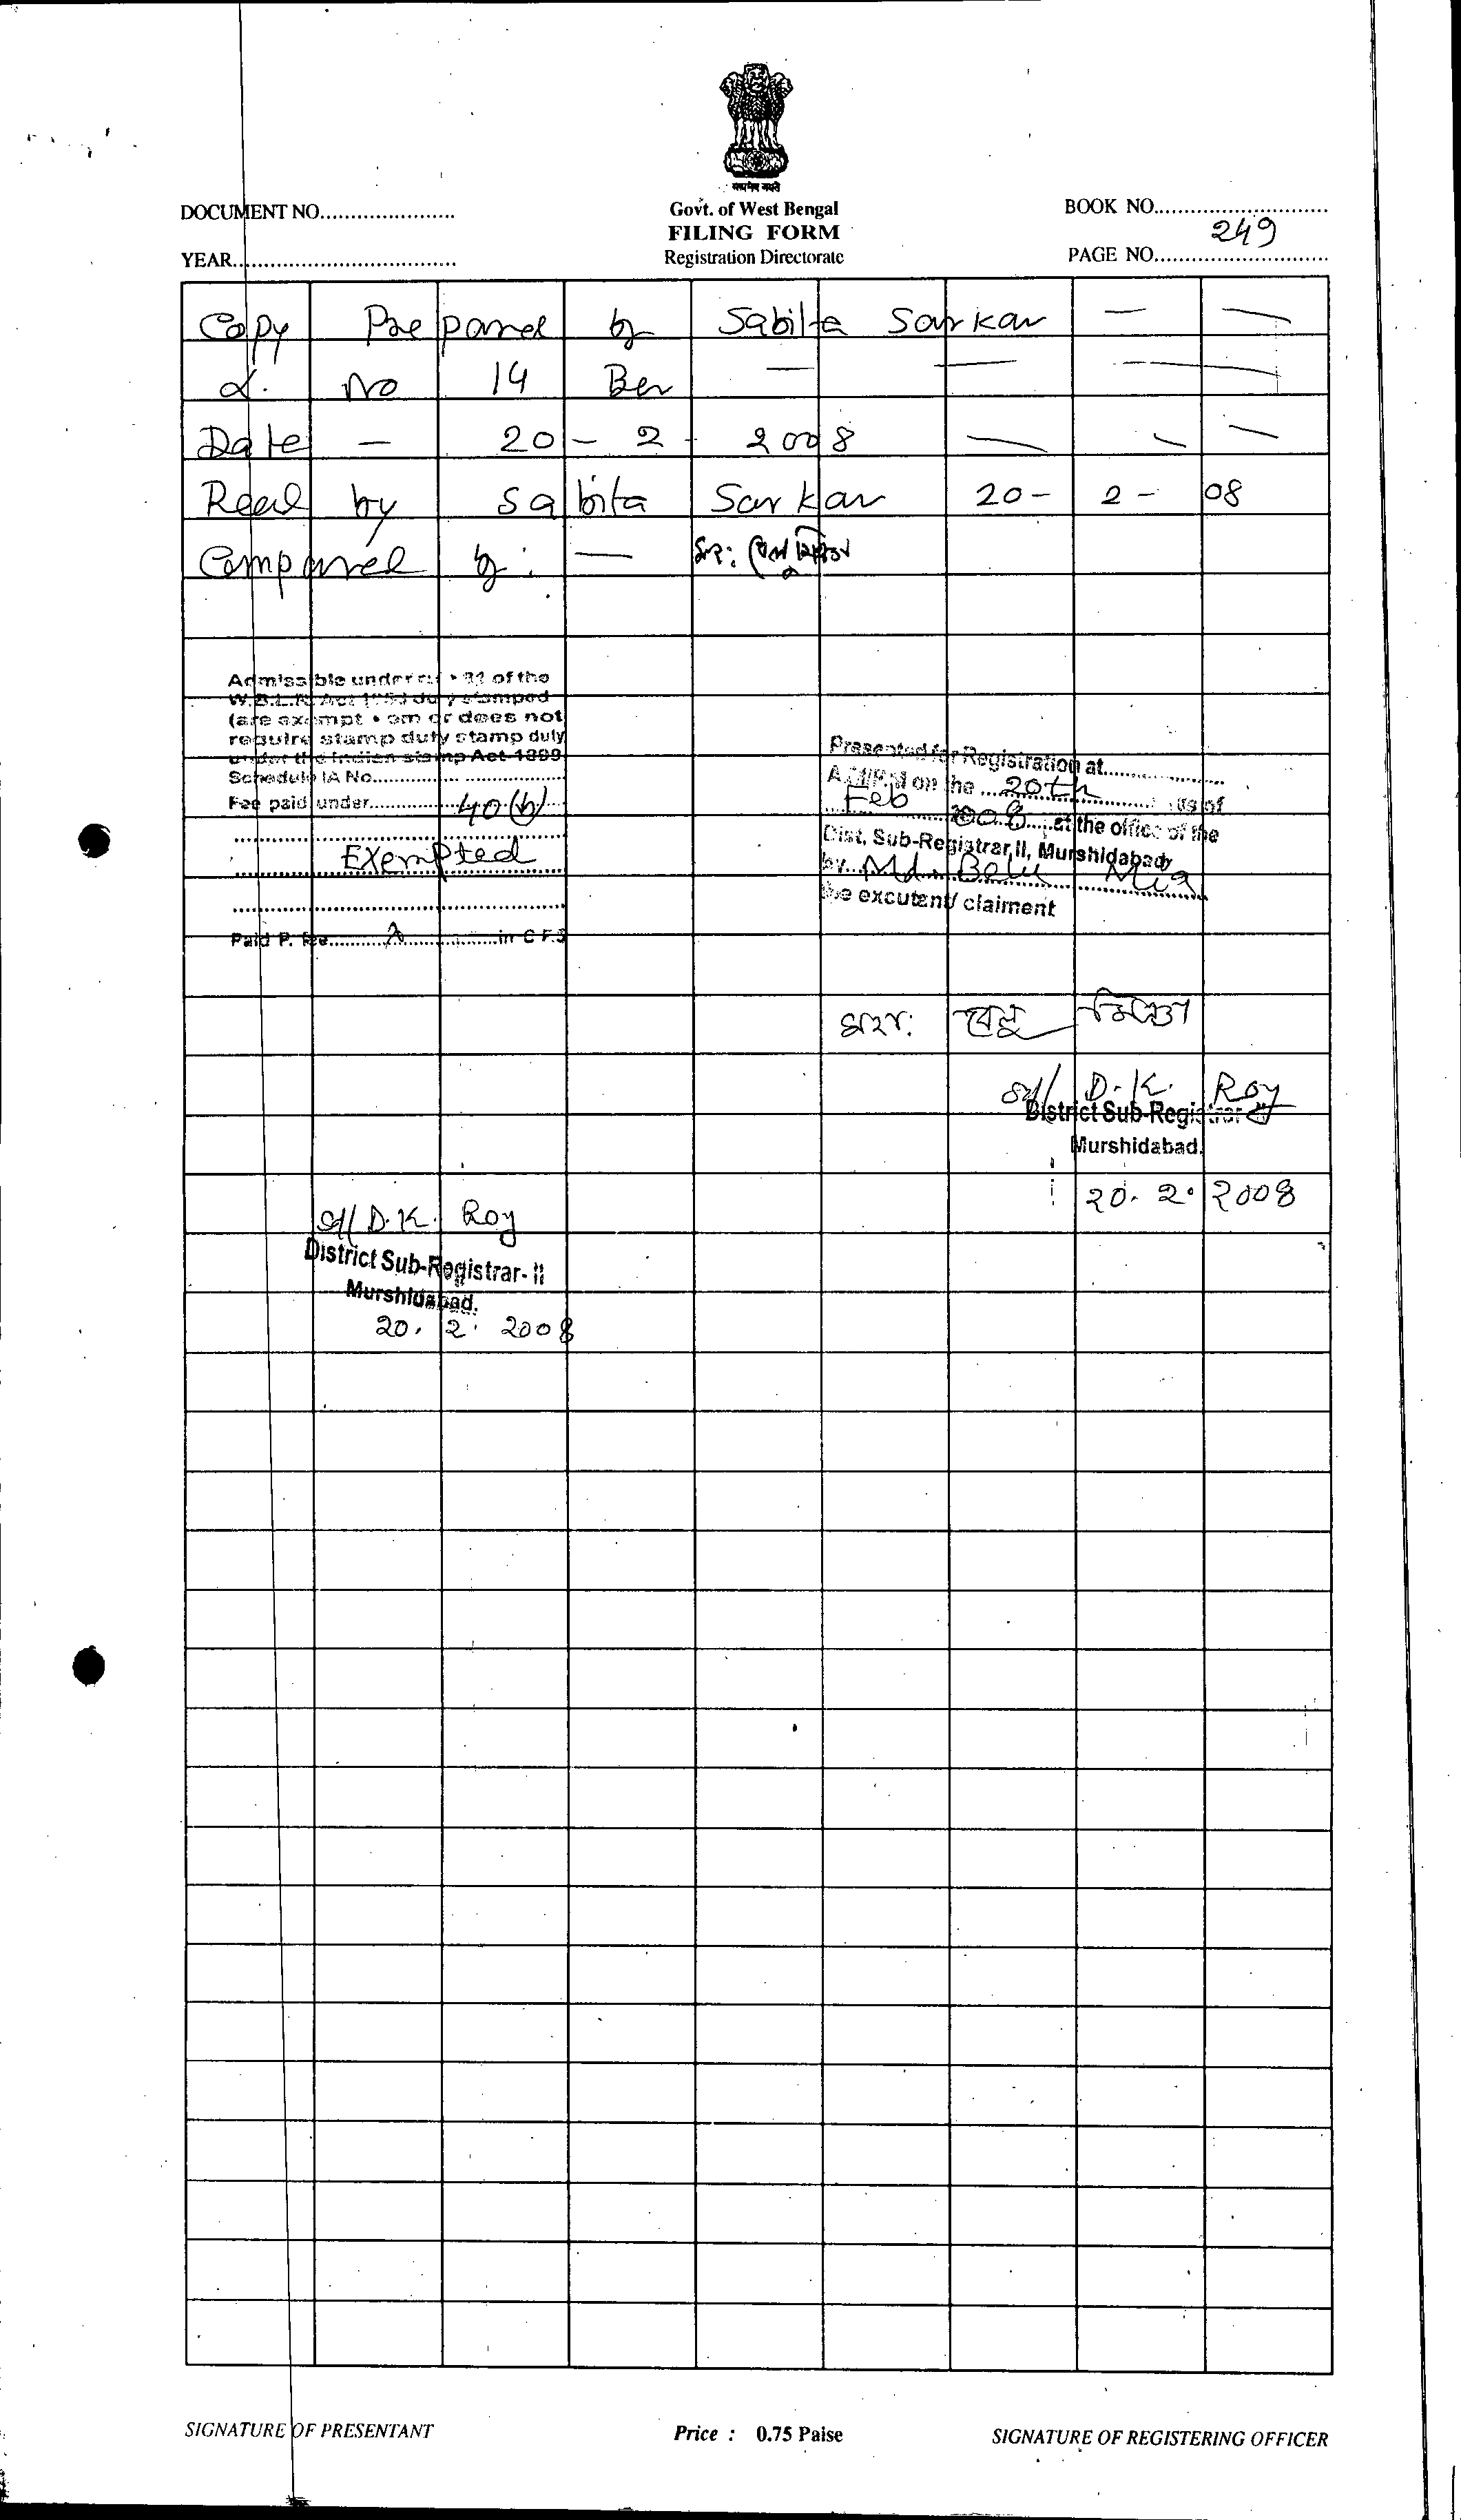 सत्यमेव जयते
DOCUMENT NO......................
Govt. of West Bengal
BOOK NO.............................
FILING FORM
249
YEAR.....................................
Registration Directorate
PAGE NO.............................
Copy Prepared by Sabita Sarkar — —
L. No 14 Ber — — —
Date — 20 - 2 - 2008 — — —
Read by Sabita Sarkar 20 - 2 - 08
Compared by : —
Admissible under of the
W.B.L.R. Act duly stamped
(are exempt or does not
require stamp duty stamp duty
under the Indian stamp Act 1899
Schedule IA No.
Fee paid under 40(b)
Exempted
Paid P. fee in C F.S
Presented for Registration at
on the 20th
Feb 2008 at the office of the
Dist. Sub-Registrar, II, Murshidabad
by Md. Belu Mia
the excutent/ claiment
বেলু মিঞা
Sd/ D. K. Roy
District Sub-Registrar
Murshidabad.
20. 2. 2008
Sd/ D. K. Roy
District Sub-Registrar- II
Murshidabad.
20. 2. 2008
SIGNATURE OF PRESENTANT
Price : 0.75 Paise
SIGNATURE OF REGISTERING OFFICER